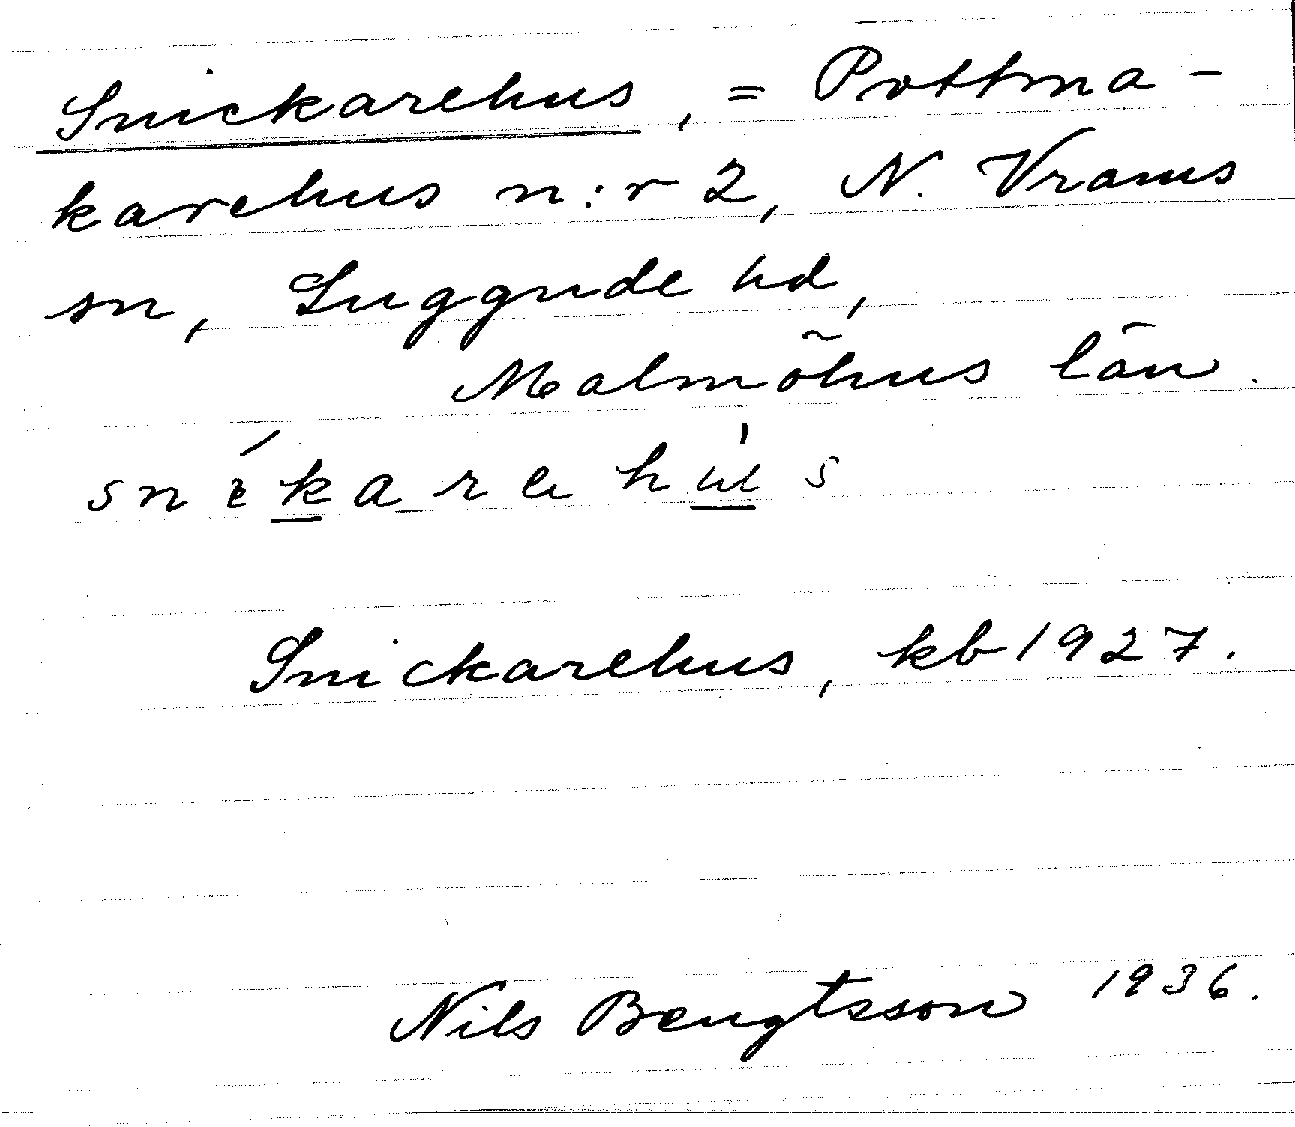 Snickarehus, = Pottma-
karehus n:r 2, N. Vrams
sn, Luggude hd,
Malmöhus län.
snikarahus
Snickarehus, kb 1927.
Nils Bengtsson 1936.